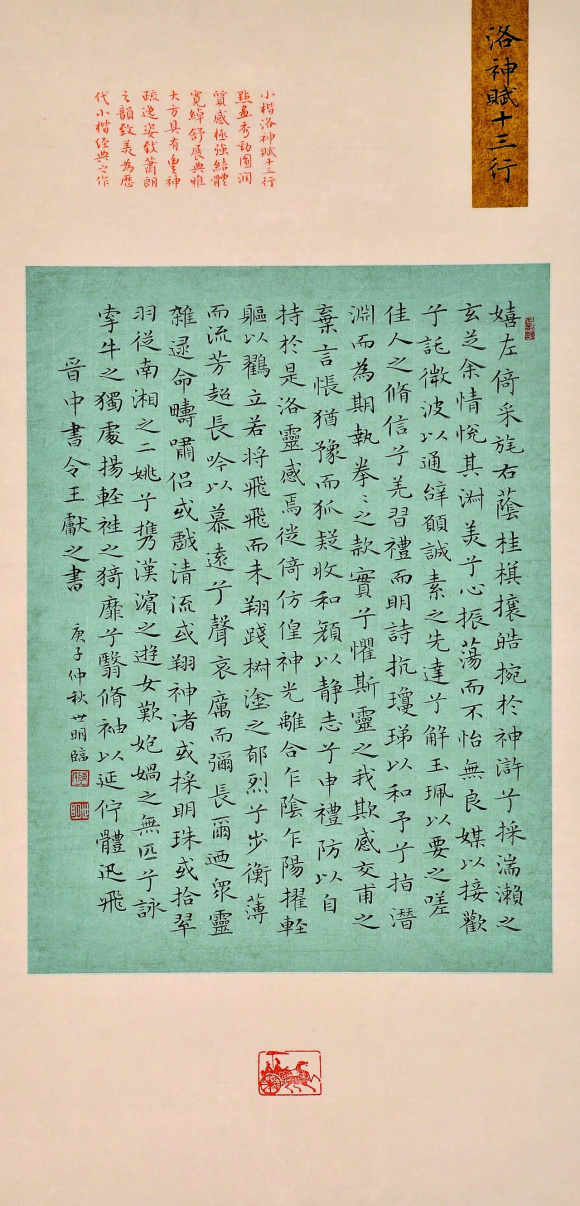 洛神賦十三行
小楷洛神賦十三行
點畫秀勁圓潤
質感極強結體
寬綽舒展典雅
大方具有豐神
疏逸姿致蕭朗
之韻致美為歷
代小楷經典之作
嬉左倚采旄右蔭桂棋攘皓捥於神滸兮採湍瀨之
玄芝余情悅其淋美兮心振蕩而不怡無良媒以接歡
兮託微波以通辭願誠素之先達兮解玉珮以要之嗟
佳人之脩信兮羌習禮而明詩抗瓊珶以和予兮指潛
淵而為期執拳〻之款實兮懼斯靈之我欺感交甫之
棄言悵猶豫而狐疑收和顏以靜志兮申禮防以自
持於是洛靈感焉徙倚仿偟神光離合乍陰乍陽擢輕
軀以鶴立若將飛飛而未翔踐椒塗之郁烈兮步衡薄
而流芳超長吟以慕遠兮聲哀厲而彌長爾迺眾靈
雜遝命疇嘯侶或戲清流或翔神渚或採明珠或拾翠
羽從南湘之二姚兮攜漢濱之遊女歎匏媧之無匹兮詠
牽牛之獨處揚輕袿之猗靡兮翳脩袖以延佇體迅飛
晉中書令王獻之書
庚子仲秋世明臨